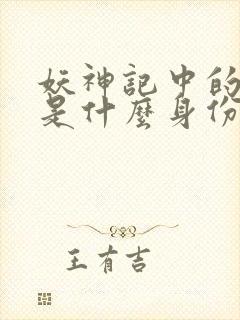 妖神記中的
是什麼身份
王有吉